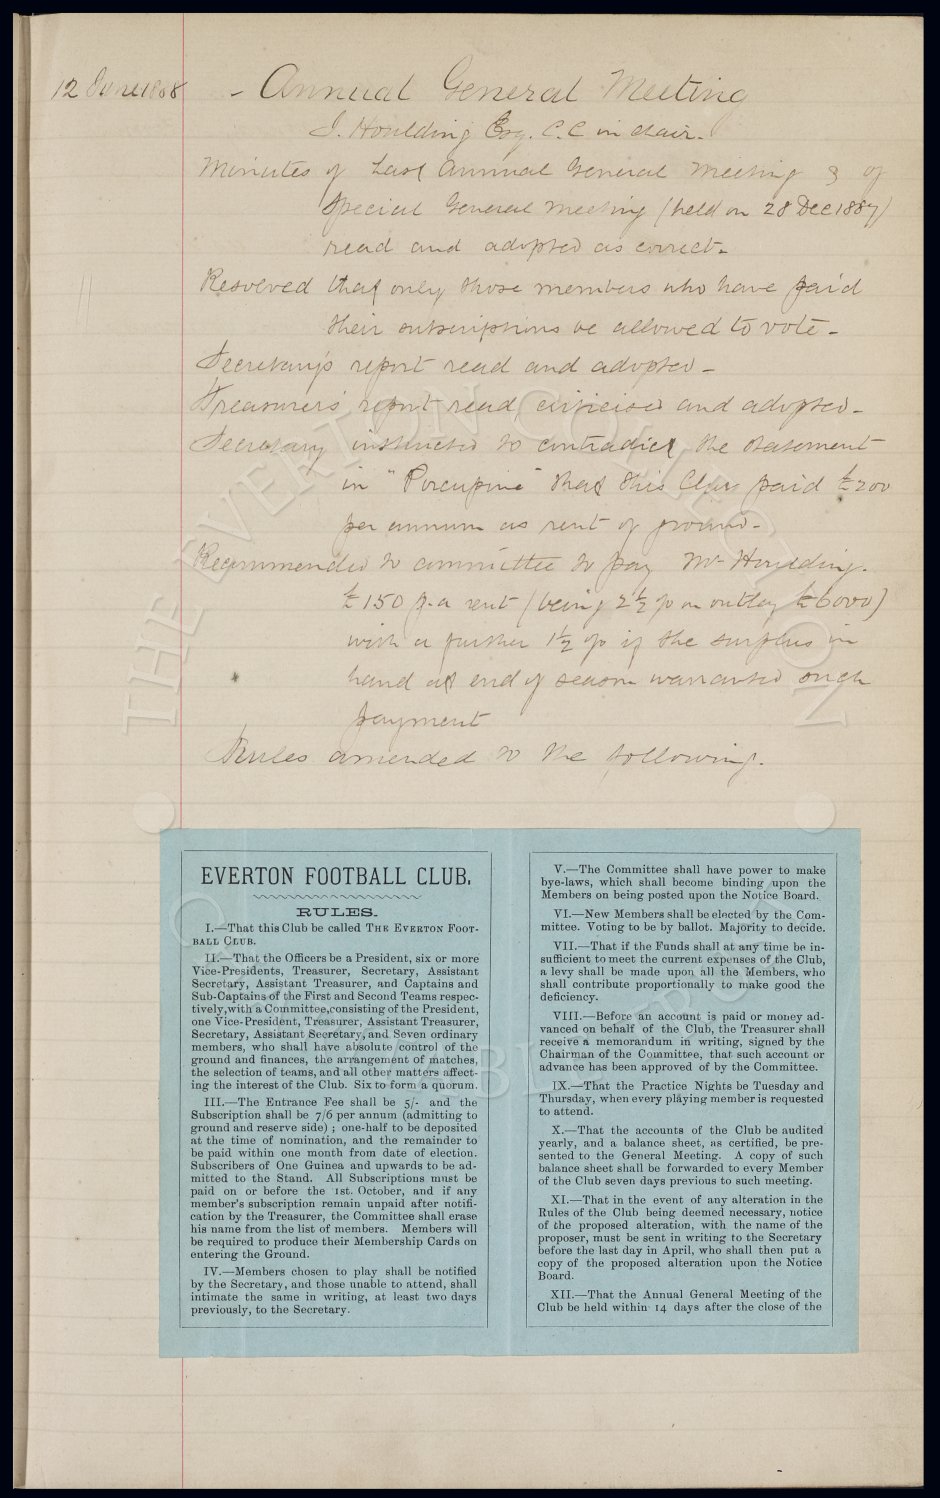 12 June 1888
- Annual General Meeting
J. Houlding Esq. C.C in chair.
Minutes of Last Annual General Meeting & of
Special General Meeting (held on 28 Dec 1887)
read and adopted as correct -
Resolved that only those members who have paid
their subscriptions be allowed to vote -
Secretary's report read and adopted -
Treasurer's report read, criticised and adopted -
Secretary instructed to contradict the statement
in "Porcupine" that this Club paid £200
per annum as rent of ground -
Recommended to committee to pay Mr Houlding.
£150 p.a rent (being 2½ % on outlay £6000)
with a further 1½ % if the surplus in
hand at end of season warranted such
payment
Rules amended to the following.
EVERTON FOOTBALL CLUB.
RULES.
I.—That this Club be called THE EVERTON FOOT-
BALL CLUB.
II.—That the Officers be a President, six or more
Vice-Presidents, Treasurer, Secretary, Assistant
Secretary, Assistant Treasurer, and Captains and
Sub-Captains of the First and Second Teams respec-
tively, with a Committee, consisting of the President,
one Vice-President, Treasurer, Assistant Treasurer,
Secretary, Assistant Secretary, and Seven ordinary
members, who shall have absolute control of the
ground and finances, the arrangement of matches,
the selection of teams, and all other matters affect-
ing the interest of the Club. Six to form a quorum.
III.—The Entrance Fee shall be 5/- and the
Subscription shall be 7/6 per annum (admitting to
ground and reserve side) ; one-half to be deposited
at the time of nomination, and the remainder to
be paid within one month from date of election.
Subscribers of One Guinea and upwards to be ad-
mitted to the Stand. All Subscriptions must be
paid on or before the 1st. October, and if any
member's subscription remain unpaid after notifi-
cation by the Treasurer, the Committee shall erase
his name from the list of members. Members will
be required to produce their Membership Cards on
entering the Ground.
IV.—Members chosen to play shall be notified
by the Secretary, and those unable to attend, shall
intimate the same in writing, at least two days
previously, to the Secretary.
V.—The Committee shall have power to make
bye-laws, which shall become binding upon the
Members on being posted upon the Notice Board.
VI.—New Members shall be elected by the Com-
mittee. Voting to be by ballot. Majority to decide.
VII.—That if the Funds shall at any time be in-
sufficient to meet the current expenses of the Club,
a levy shall be made upon all the Members, who
shall contribute proportionally to make good the
deficiency.
VIII.—Before an account is paid or money ad-
vanced on behalf of the Club, the Treasurer shall
receive a memorandum in writing, signed by the
Chairman of the Committee, that such account or
advance has been approved of by the Committee.
IX.—That the Practice Nights be Tuesday and
Thursday, when every playing member is requested
to attend.
X.—That the accounts of the Club be audited
yearly, and a balance sheet, as certified, be pre-
sented to the General Meeting. A copy of such
balance sheet shall be forwarded to every Member
of the Club seven days previous to such meeting.
XI.—That in the event of any alteration in the
Rules of the Club being deemed necessary, notice
of the proposed alteration, with the name of the
proposer, must be sent in writing to the Secretary
before the last day in April, who shall then put a
copy of the proposed alteration upon the Notice
Board.
XII.—That the Annual General Meeting of the
Club be held within 14 days after the close of the
THE EVERTON COLLECTION